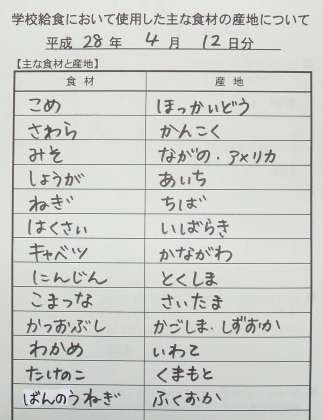 学校給食において使用した主な食材の産地について
平成 28 年 4 月 12 日分
【主な食材と産地】
食材 産地
こめ ほっかいどう
さわら かんこく
みそ ながの・アメリカ
しょうが あいち
ねぎ ちば
はくさい いばらき
キャベツ かながわ
にんじん とくしま
こまつな さいたま
かつおぶし かごしま・しずおか
わかめ いわて
たけのこ くまもと
ばんのうねぎ ふくおか